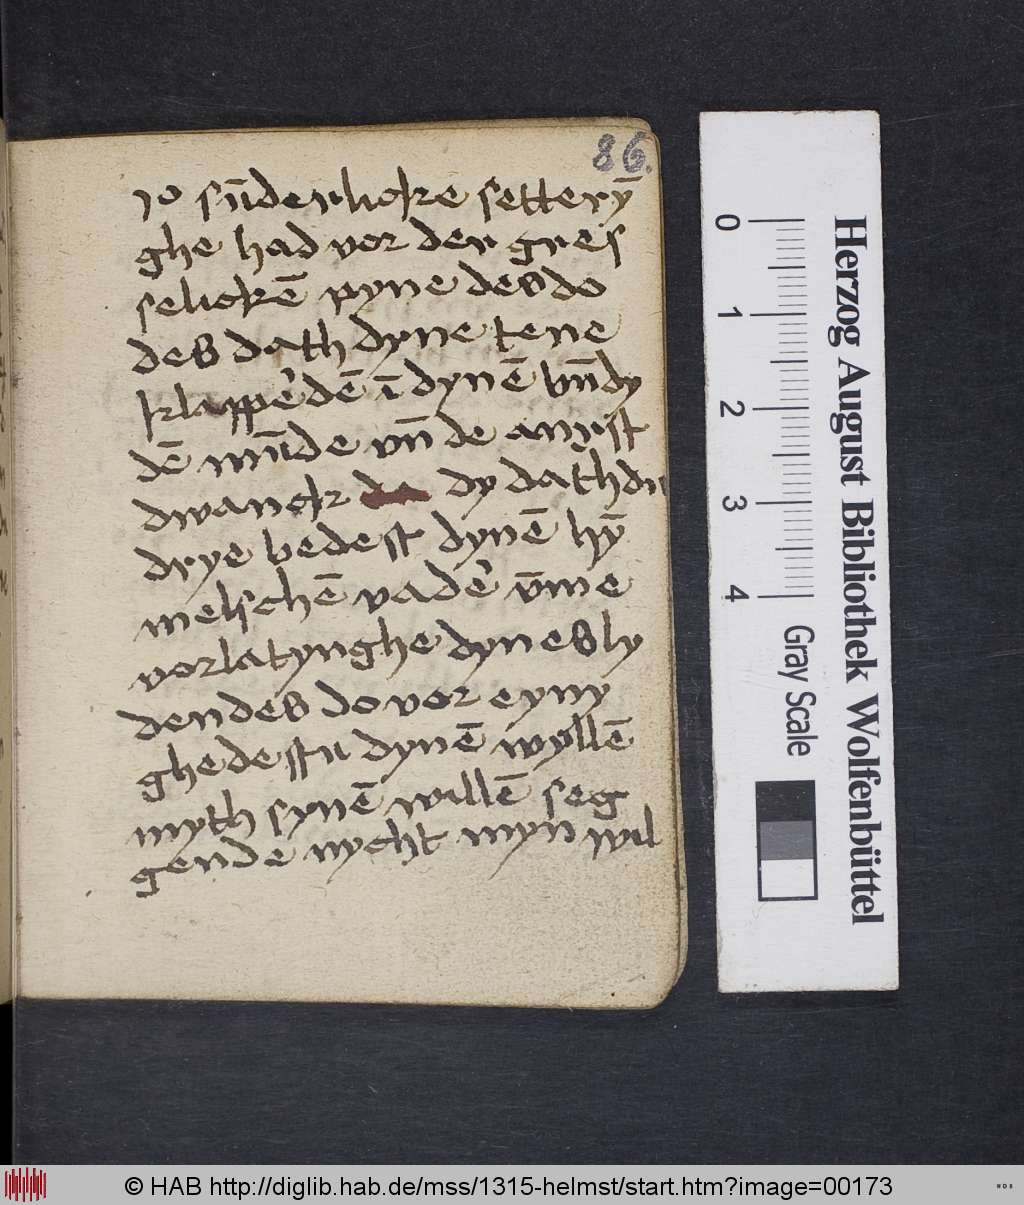 86.
io sūdenlicke setterȳ
ghe had vor den gres
selickē pyne des do
des dath dyne tene
klappe'dē ī dynē vn̄dy
dē mūde vn̄ de anxst
dwanck da dy dath du
drye bedest dynē hȳ
melschē vade' v̄me
vorlatynghe dynes ly
dendes do vor eyny
ghedestu dynē wyllē
myth synē willē seg
gende nycht myn wil
Herzog August Bibliothek Wolfenbüttel
0 1 2 3 4
Gray Scale
© HAB http://diglib.hab.de/mss/1315-helmst/start.htm?image=00173